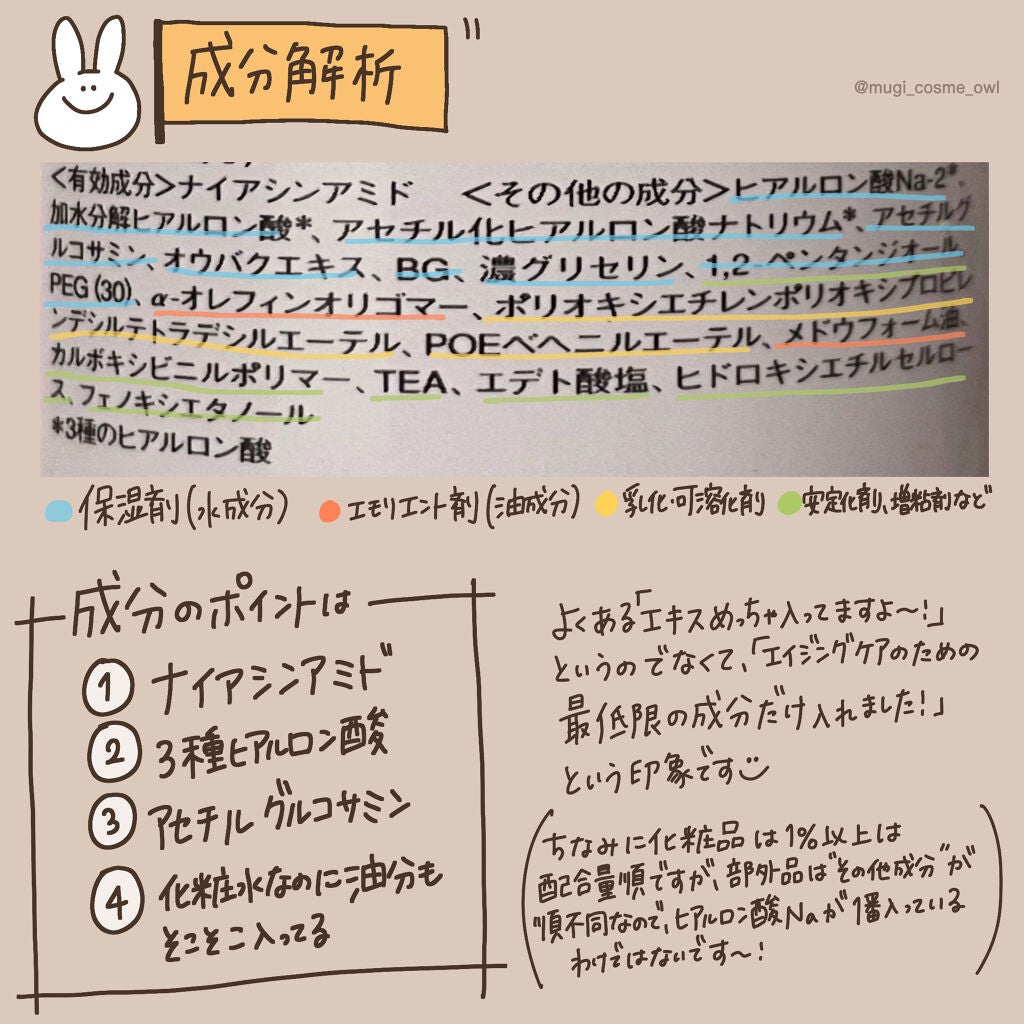 成分解析
@mugi_cosme_owl
<有効成分>ナイアシンアミド <その他の成分>ヒアルロン酸Na-2*、
加水分解ヒアルロン酸*、アセチル化ヒアルロン酸ナトリウム*、アセチルグ
ルコサミン、オウバクエキス、BG、濃グリセリン、1,2-ペンタンジオール
PEG(30)、α-オレフィンオリゴマー、ポリオキシエチレンポリオキシプロピレ
ンデシルテトラデシルエーテル、POEベヘニルエーテル、メドウフォーム油、
カルボキシビニルポリマー、TEA、エデト酸塩、ヒドロキシエチルセルロー
ス、フェノキシエタノール
*3種のヒアルロン酸
保湿剤(水成分) エモリエント剤(油成分) 乳化・可溶化剤 安定化剤、増粘剤など
成分のポイントは
1 ナイアシンアミド
2 3種ヒアルロン酸
3 アセチルグルコサミン
4 化粧水なのに油分も
そこそこ入ってる
よくある「エキスめっちゃ入ってますよ〜!」
というのでなくて、「エイジングケアのための
最低限の成分だけ入れました!」
という印象です
(ちなみに化粧品は1%以上は
配合量順ですが、部外品は"その他成分"が
順不同なので、ヒアルロン酸Naが1番入っている
わけではないです〜!)